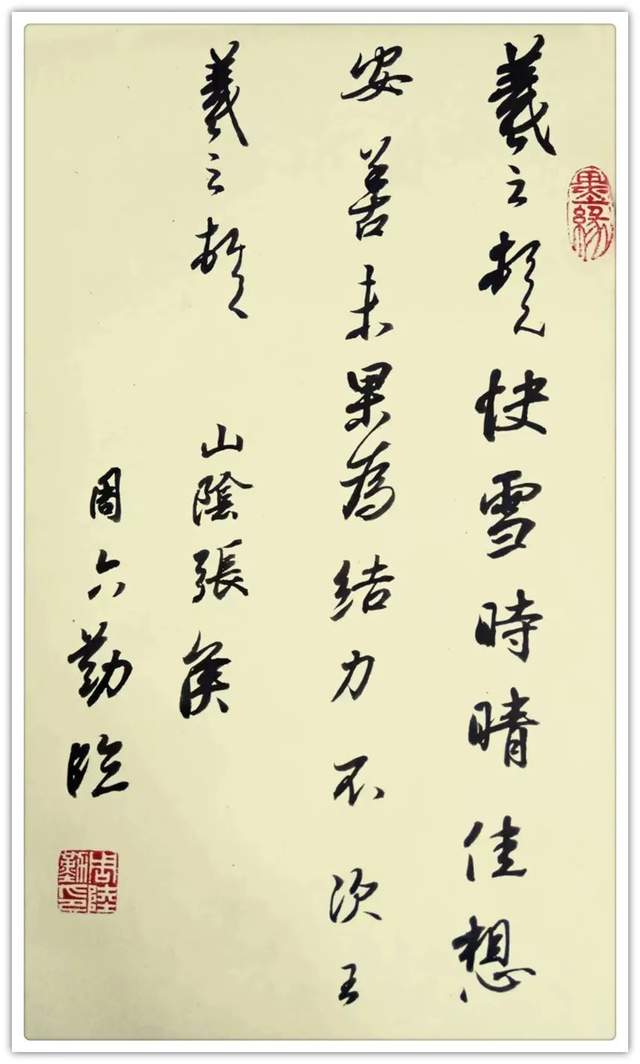 羲之頓首快雪時晴佳想
安善未果為結力不次王
羲之頓首
山陰張侯
周六勤臨
墨緣
周陸勤印